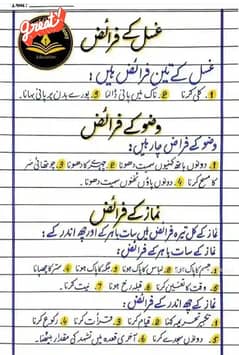 great
Education
غسل کے فرائض
غسل کے تین فرائض ہیں:
1. کلی کرنا 2 ناک میں پانی ڈالنا 3 پورے بدن پر پانی بہانا۔
وضو کے فرائض
وضو کے فراض چار ہیں:
1. دونوں ہاتھ کہنیوں سمیت دھونا 2 چہرے کا دھونا 3 چوتھائی سر
کا مسح کرنا 4 دونوں پاؤں ٹخنوں سمیت دھونا۔
نماز کے فرائض
نماز کے کل تیرہ فرائض ہیں سات باہر کے اور چھ اندر کے:
نماز کے سات باہر کے:
1. جسم کا پاک ہونا 2 لباس کا پاک ہونا 3 جگہ کا پاک ہونا 4 ستر کا چھپانا
5 وقت کا تعین کرنا 6 قبلہ رخ ہونا 7 نیت کرنا۔
نماز کے چھ اندر کے فرائض:
1. تکبیر تحریمہ کہنا 2 قیام کرنا 3 قرأت کرنا 4 رکوع کرنا
5 دونوں سجدے کرنا 6 آخری قعدہ میں تشہد کی مقدار بیٹھنا۔